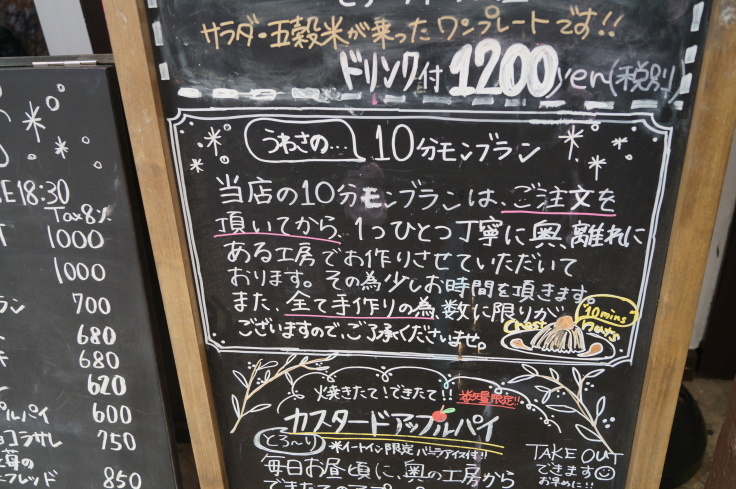 サラダ・五穀米が乗ったワンプレートです!!
ドリンク付1200yen(税別)
うわさの… 10分モンブラン
当店の10分モンブランは、ご注文を
頂いてから、1つひとつ丁寧に奥、離れに
ある工房でお作りさせていただいて
おります。その為少しお時間を頂きます。
また、全て手作りの為、数に限りが
ございますので、ご了承くださいませ。
10mins
nuts
焼きたて!できたて!! 数量限定!!
カスタードアップルパイ
とろ〜り
※イートイン限定 バニラアイス付!!
毎日お昼頃に、奥の工房から
TAKE OUT
できます
お早めに!!
18:30
Tax8%
1000
1000
700
680
680
620
プルパイ 600
ョコラサレ 750
850